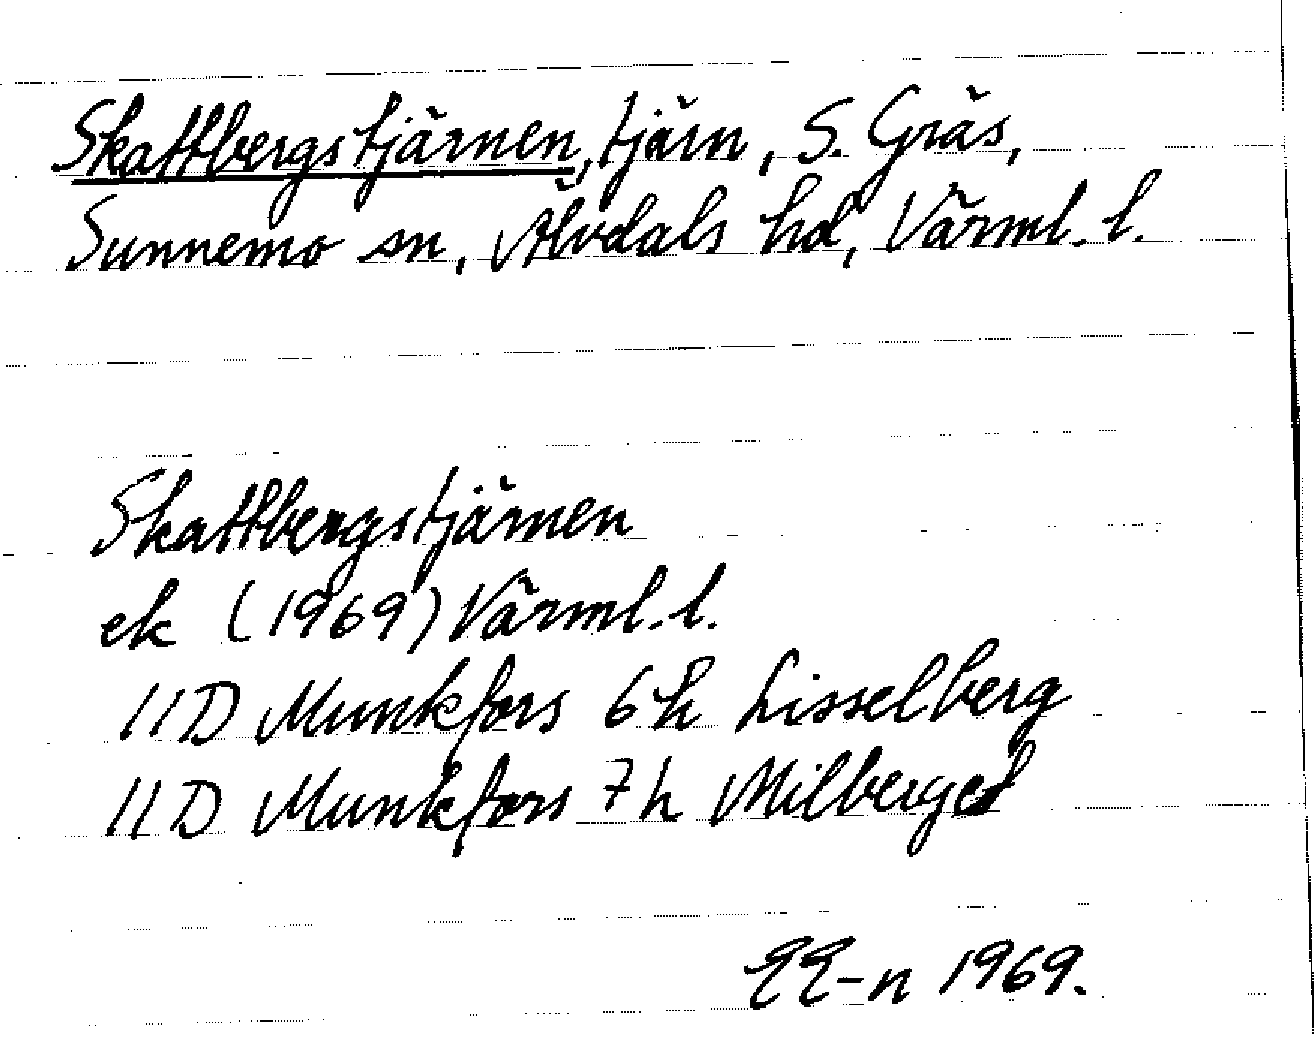 Skattbergstjärnen, tjärn, S. Gräs,
Sunnemo sn, Älvdals hd, Värml. l.
Skattbergstjärnen
ek (1969) Värml. l.
11D Munkfors 6h Lisselberg
11D Munkfors 7h Milberget
EE-n 1969.